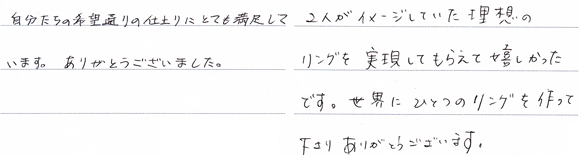 自分たちの希望通りの仕上りにとても満足して
います。ありがとうございました。
2人がイメージしていた理想の
リングを実現してもらえて嬉しかった
です。世界にひとつのリングを作って
下さりありがとうございます。